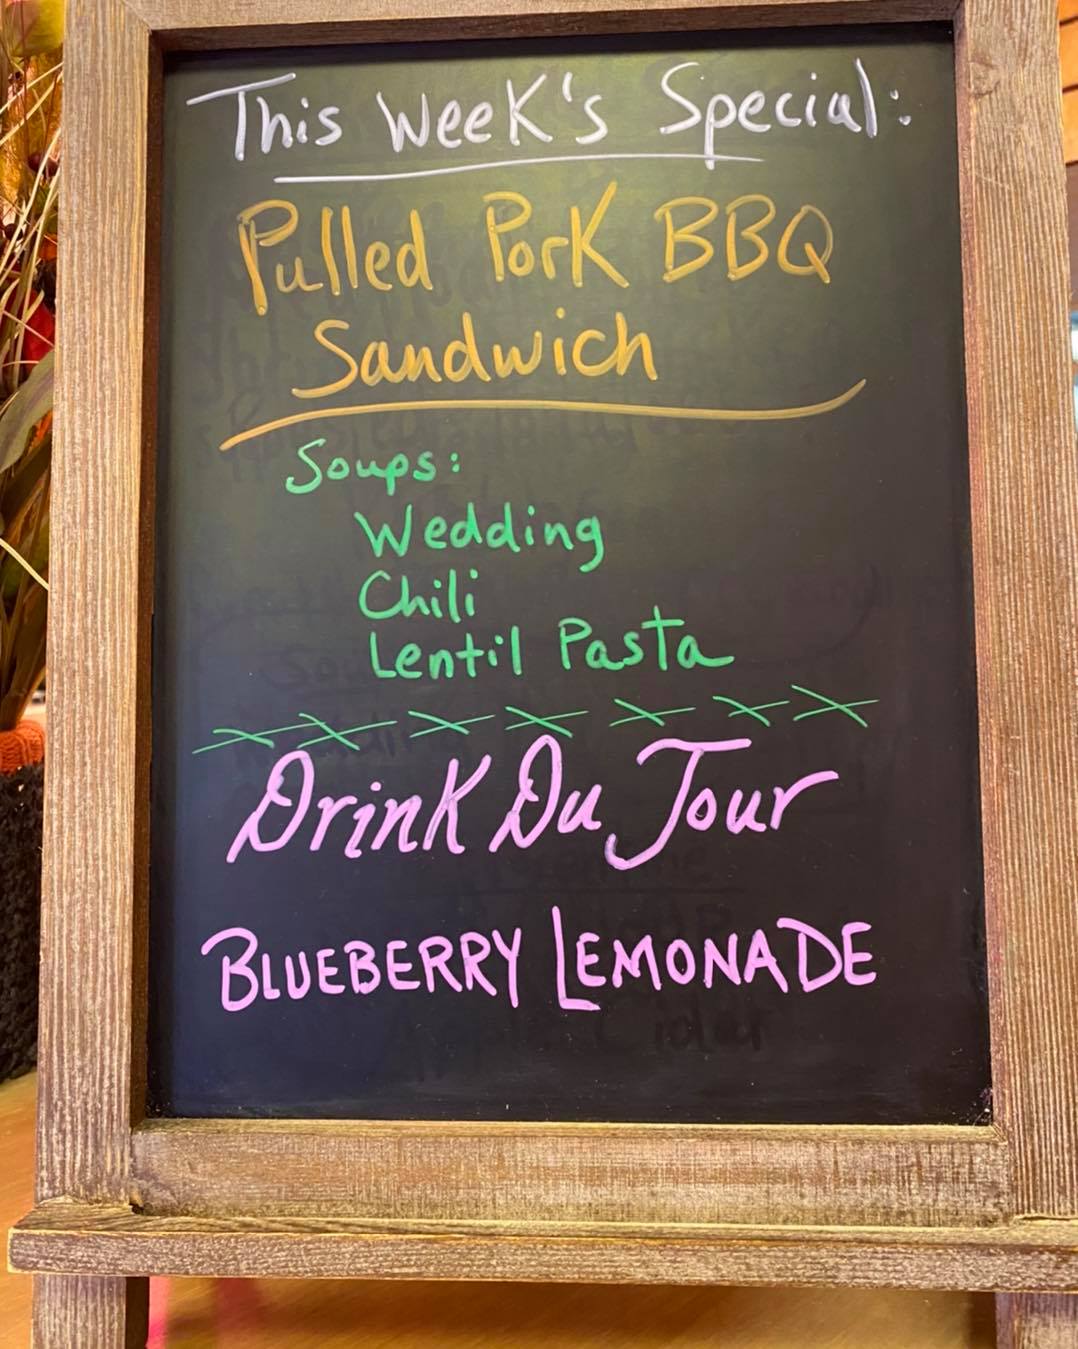 This Week's Special:
Pulled Pork BBQ
Sandwich
Soups:
Wedding
Chili
Lentil Pasta
Drink Du Jour
BLUEBERRY LEMONADE
Cider